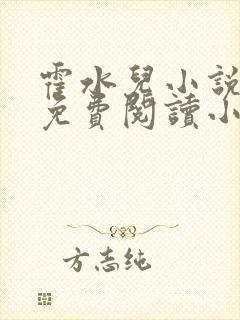 霍水兒小說
免費閱讀小
方志纯